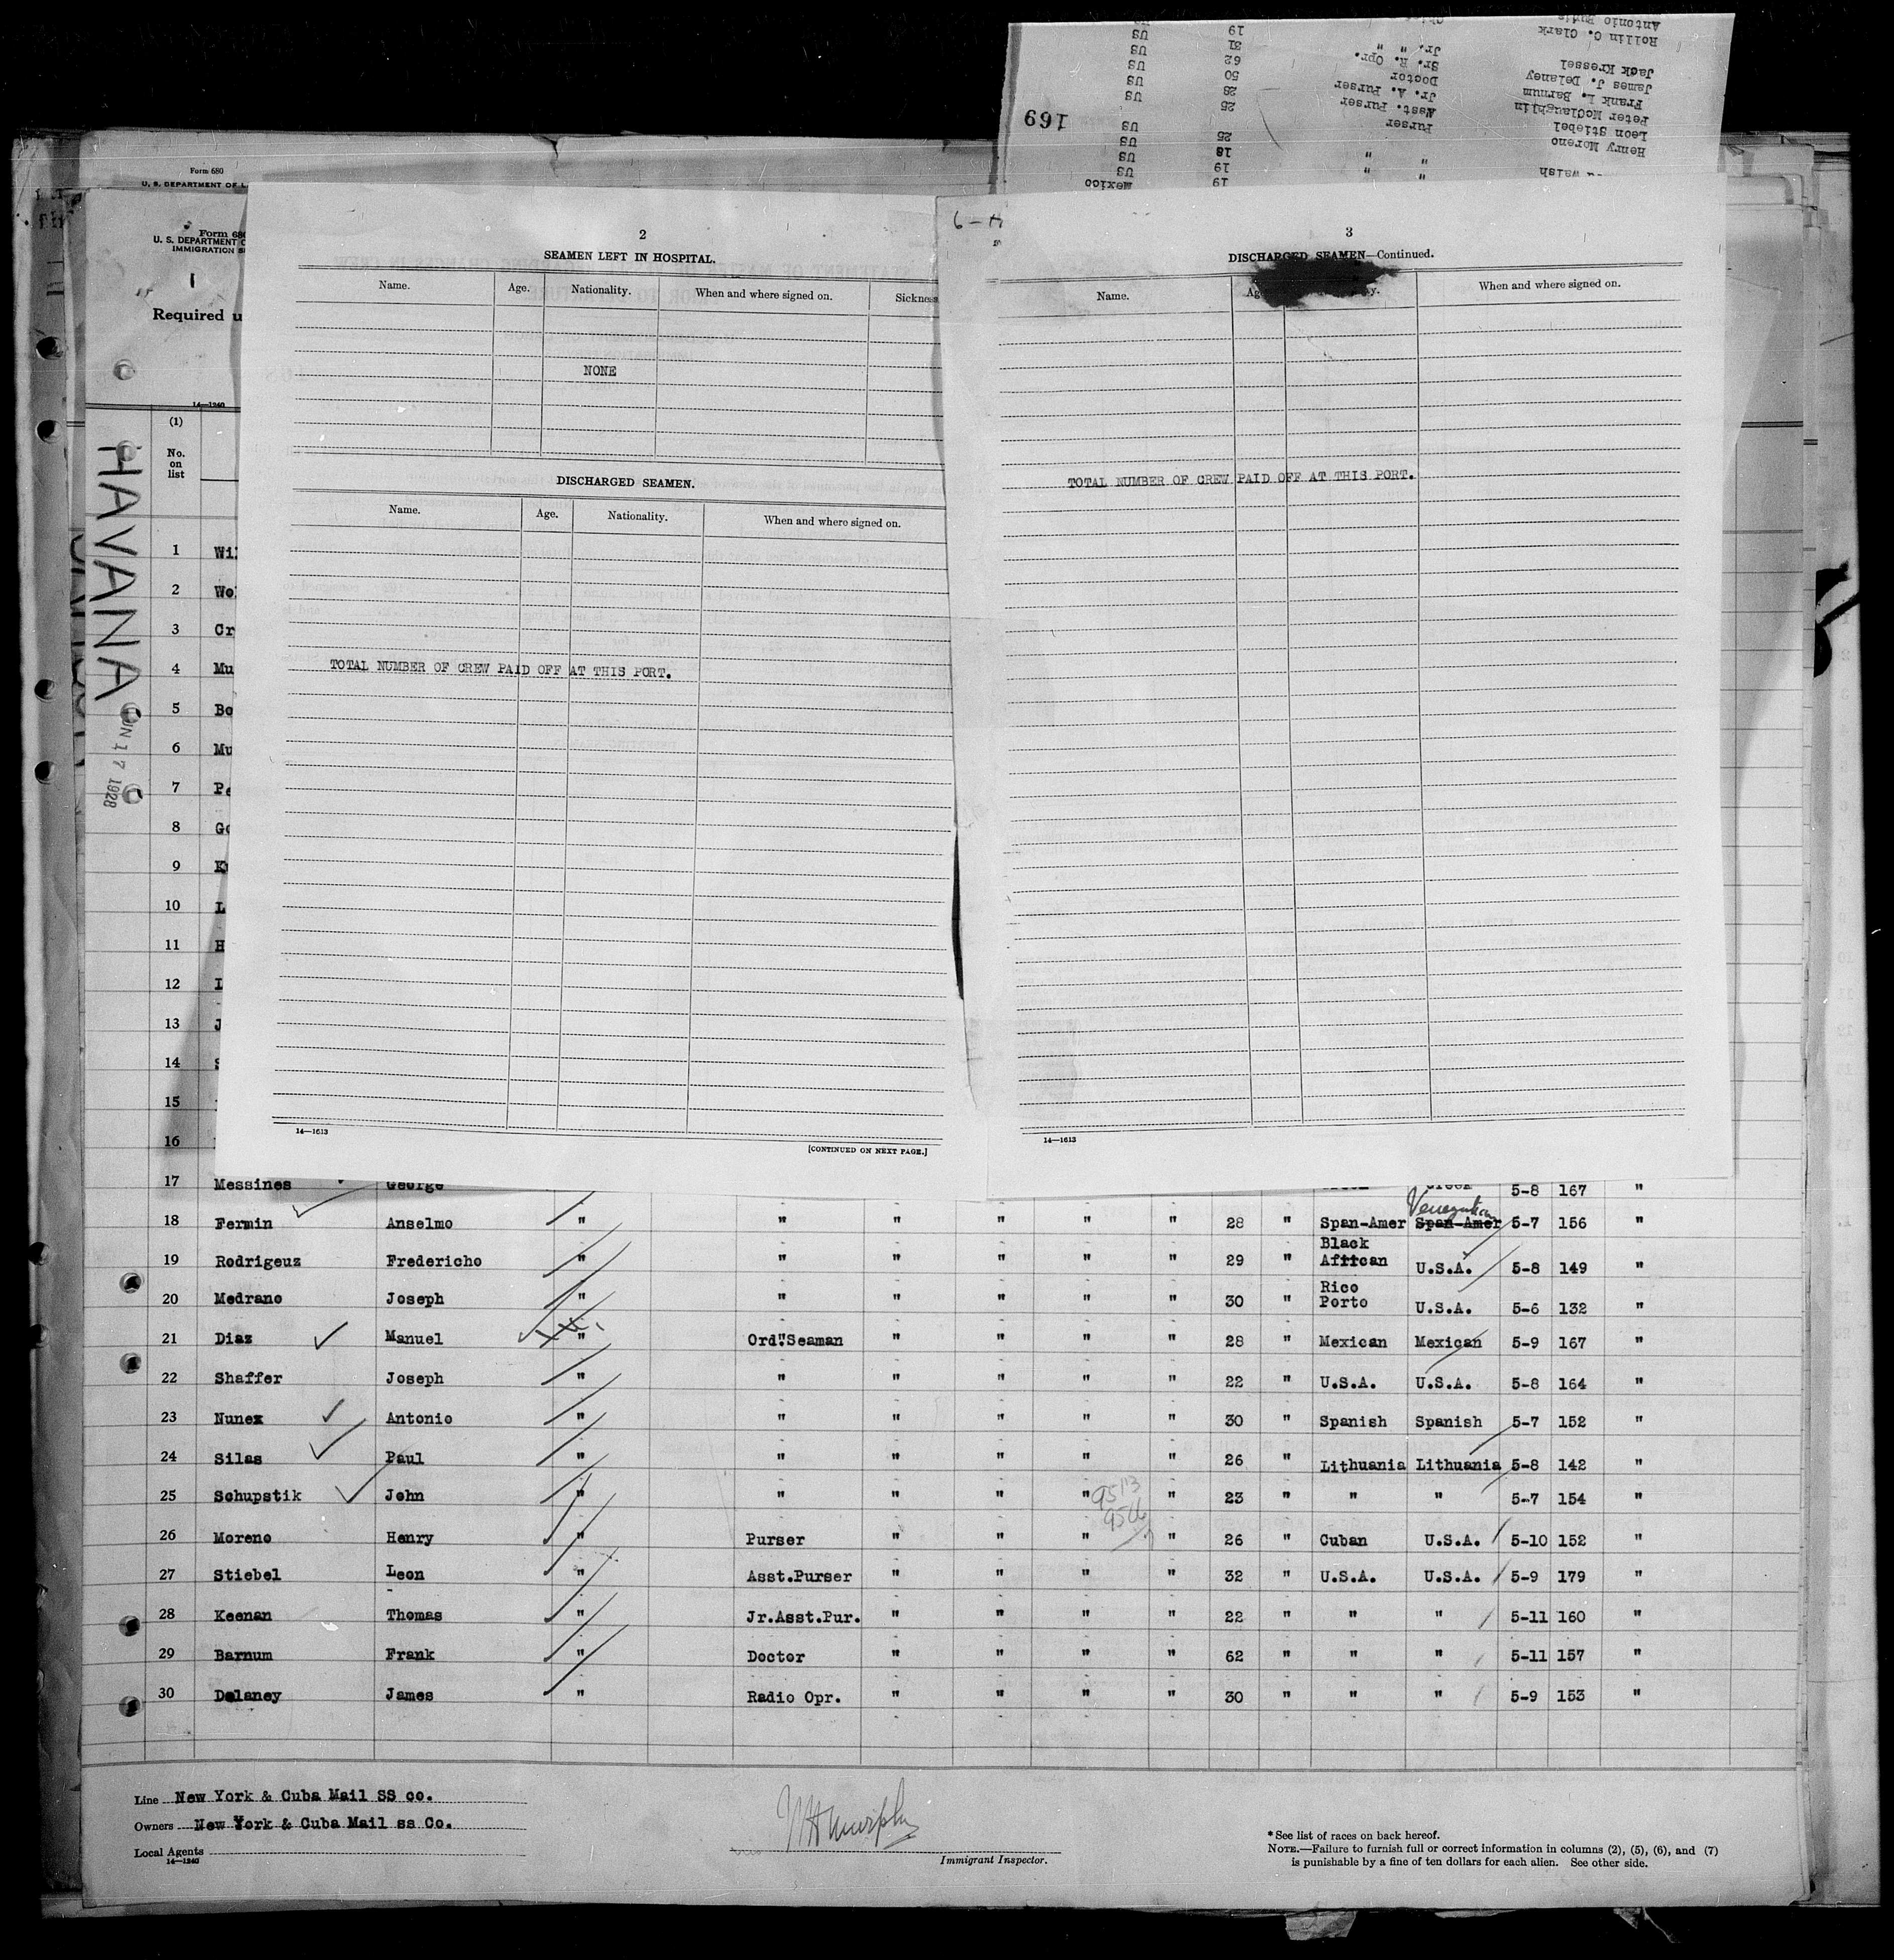 Antonio
Rollin C. Clark 19 US
Jr. " " 31 US
Jack Kressel Sr. R. Opr. 62 US
James J. Delaney Doctor 50 US
Frank L. Barnum Jr. A. Purser 28 US
Peter McClaughlin Asst. Purser 25 US
Leon Stiebel Purser
169
Henry Moreno " 25 US
" " 18 US
Walsh " " 19 US
19 Mexico
Form 680
U. S. DEPARTMENT OF L
Form 680
U. S. DEPARTMENT O
IMMIGRATION S
Required u
14—1240
(1)
No.
on
list
HAVANA
UN 17 1928
2
SEAMEN LEFT IN HOSPITAL.
Name. Age. Nationality. When and where signed on. Sickness
NONE
DISCHARGED SEAMEN.
Name. Age. Nationality. When and where signed on.
TOTAL NUMBER OF CREW PAID OFF AT THIS PORT.
14—1613
[CONTINUED ON NEXT PAGE.]
6-H
3
DISCHARGED SEAMEN—Continued.
Name. Ag y. When and where signed on.
TOTAL NUMBER OF CREW PAID OFF AT THIS PORT.
14—1613
1 Wil
2 Wo
3 Cr
4 Mu
5 Bo
6 Mu
7 Pe
8 Go
9 K
10 L
11 H
12
13 J
14 S
15
16
17 Messines George Greek 5-8 167 "
18 Fermin Anselmo " " " " " " 28 " Span-Amer Span-Amer Venezuelan 5-7 156 "
19 Rodrigeuz Fredericho " " " " " " 29 " Black African U.S.A. 5-8 149 "
20 Medrano Joseph " " " " " " 30 " Rico Porto U.S.A. 5-6 132 "
21 Diaz Manuel " Ord. Seaman " " " " 28 " Mexican Mexican 5-9 167 "
22 Shaffer Joseph " " " " " " 22 " U.S.A. U.S.A. 5-8 164 "
23 Nunez Antonio " " " " " " 30 " Spanish Spanish 5-7 152 "
24 Silas Paul " " " " " " 26 " Lithuania Lithuania 5-8 142 "
25 Schupstik John " " " " " " 23 " " " 5-7 154 "
26 Moreno Henry " Purser " " " " 26 " Cuban U.S.A. 5-10 152 "
27 Stiebel Leon " Asst.Purser " " " " 32 " U.S.A. U.S.A. 5-9 179 "
28 Keenan Thomas " Jr.Asst.Pur. " " " " 22 " " " 5-11 160 "
29 Barnum Frank " Doctor " " " " 62 " " " 5-11 157 "
30 Delaney James " Radio Opr. " " " " 30 " " " 5-9 153 "
Line New York & Cuba Mail SS co.
Owners New York & Cuba Mail ss Co.
Local Agents
14—1240
Immigrant Inspector.
* See list of races on back hereof.
NOTE.—Failure to furnish full or correct information in columns (2), (5), (6), and (7)
is punishable by a fine of ten dollars for each alien. See other side.